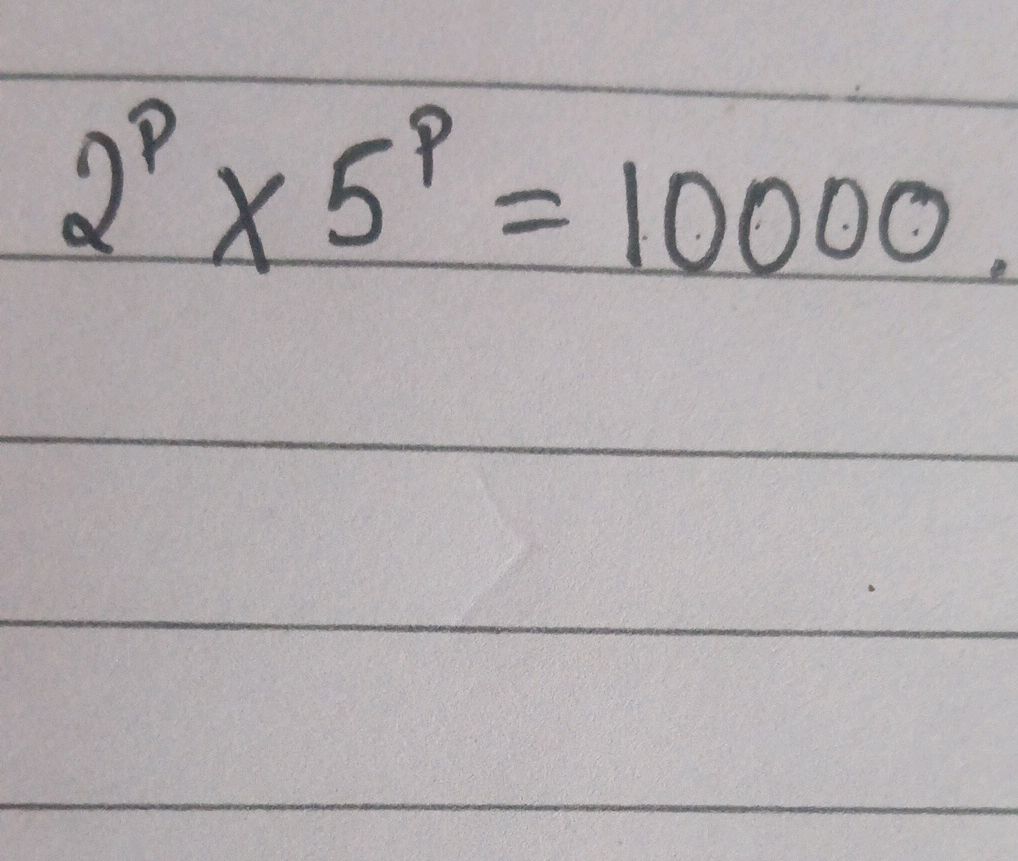 2ᵖ × 5ᵖ = 10000.